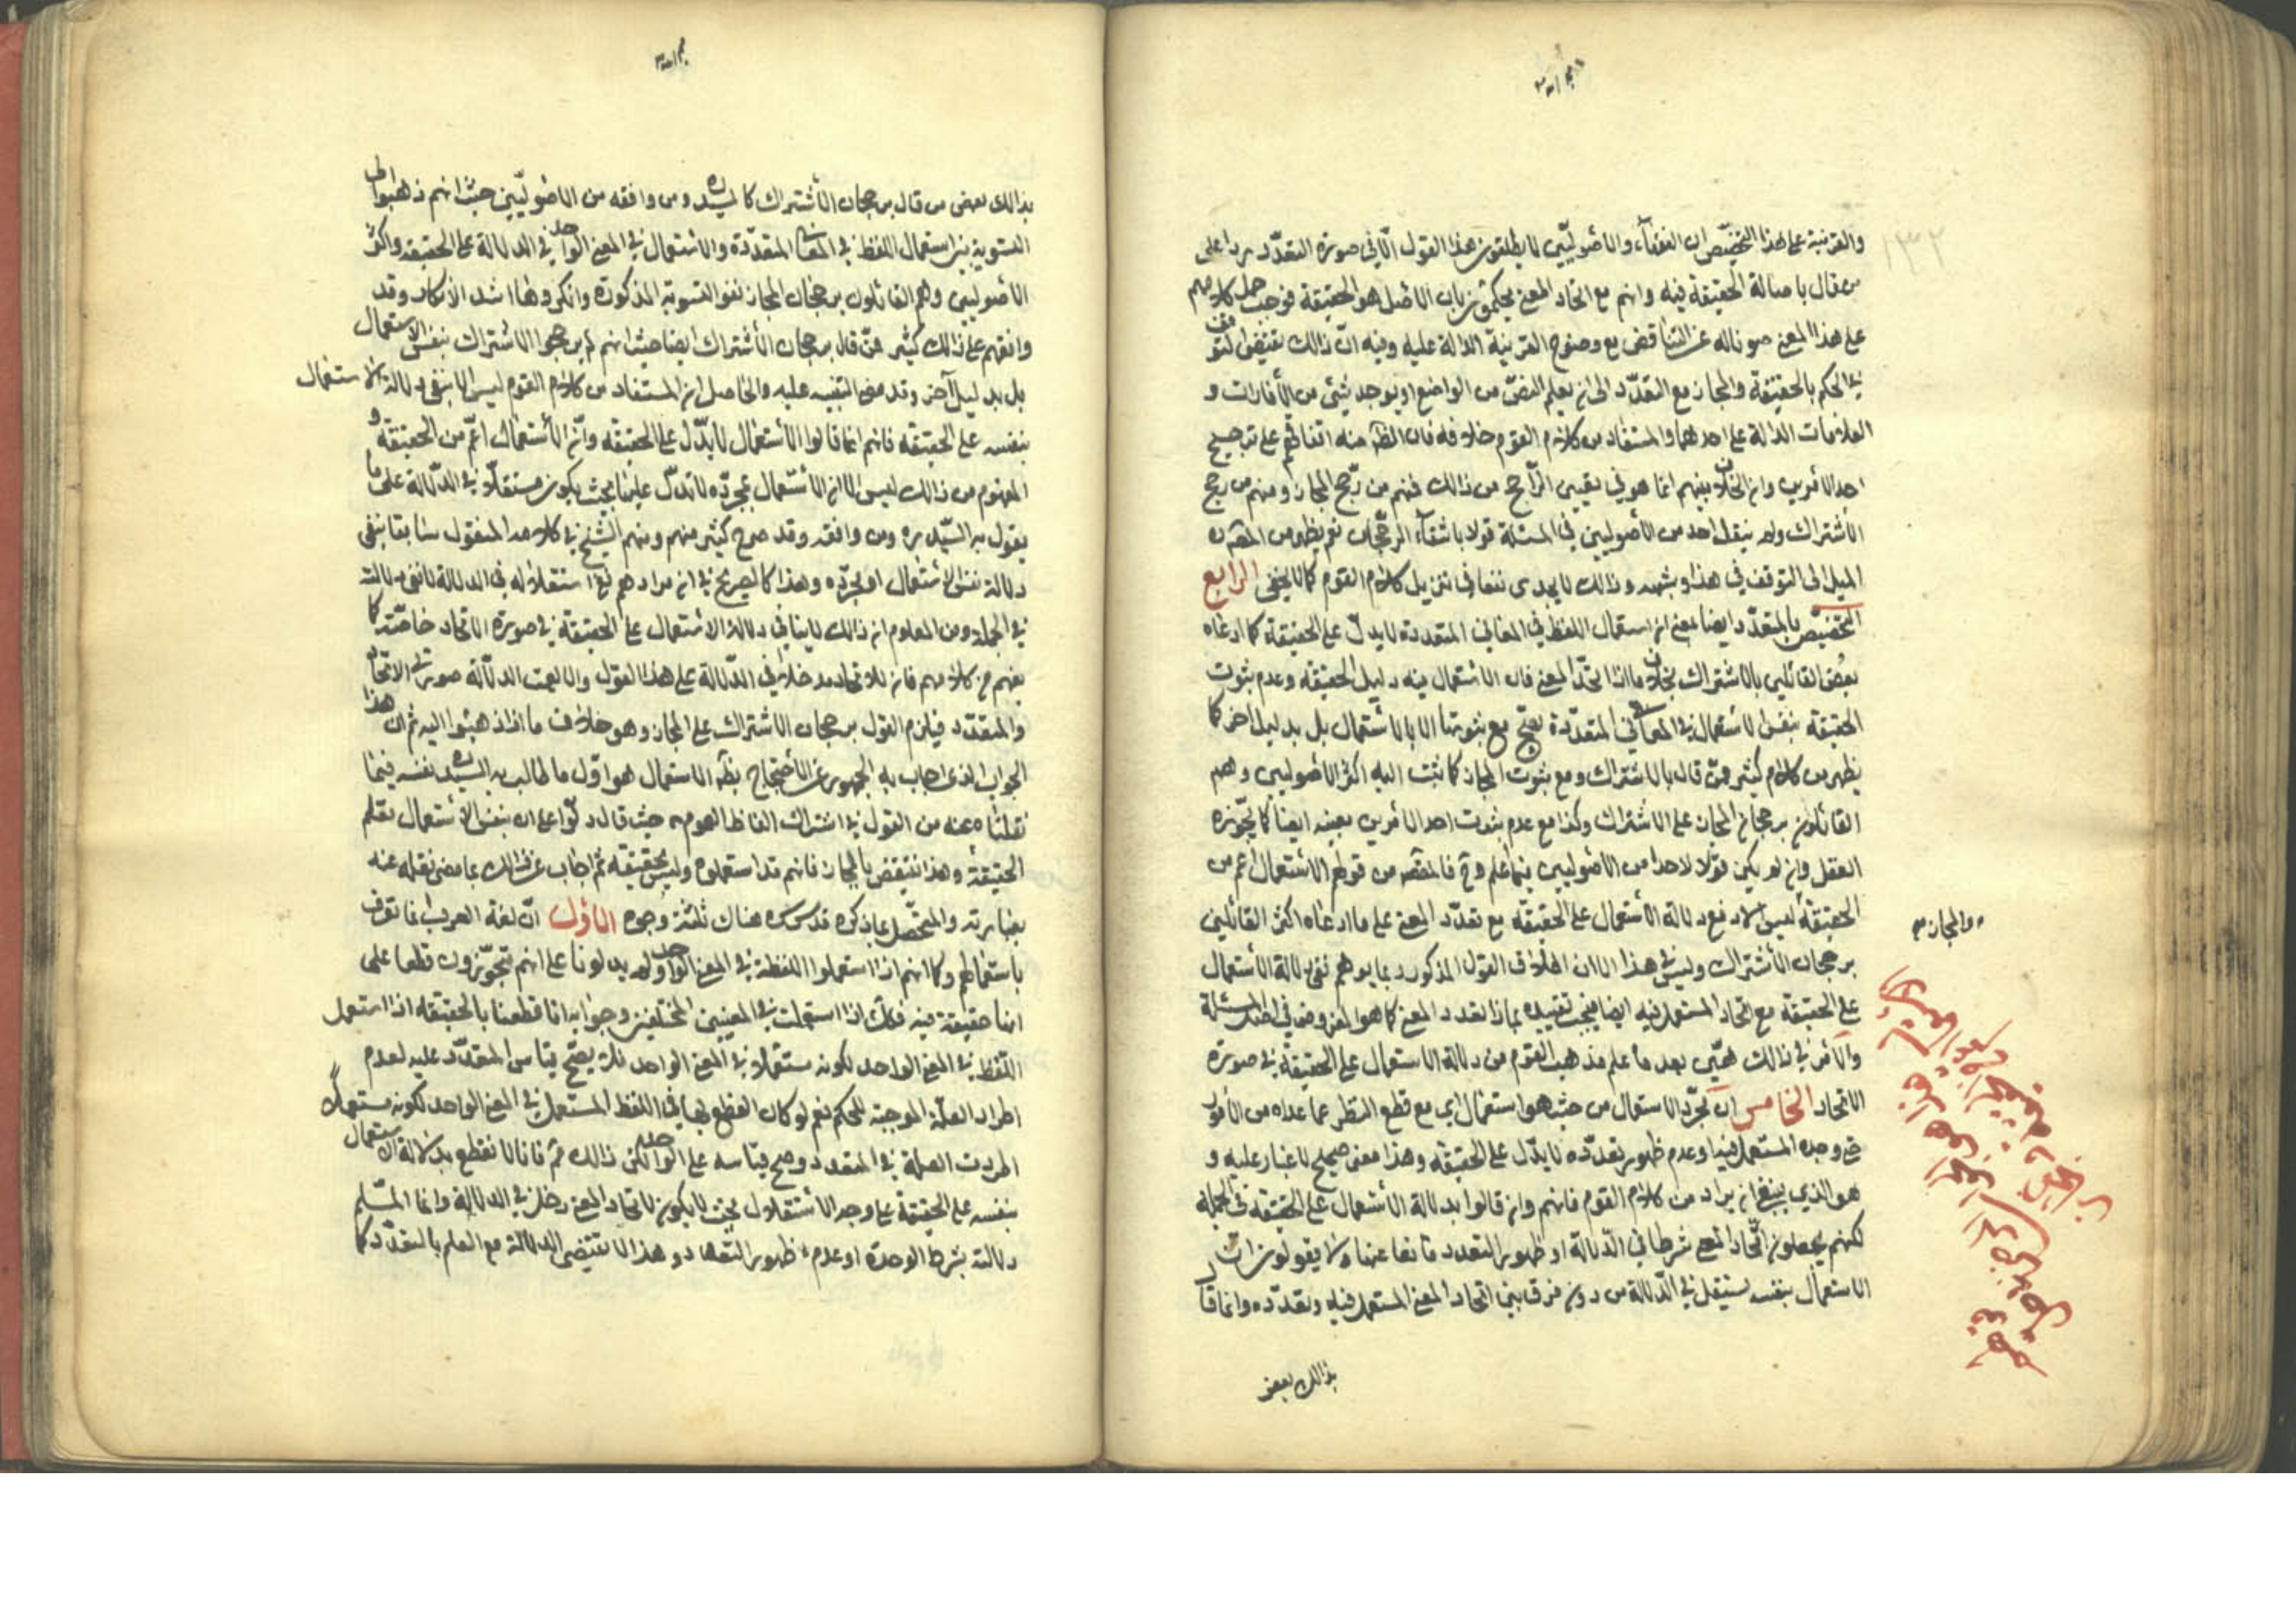 ١٣٢
والقرينة على هذا التخصيص ان الفقهاء والاصوليين لا يطلقون هذا القول الا في صورة التعدد ردا على
من قال باصالة الحقيقة فيه وانهم مع اتحاد المعنى يحكمون بان الاصل هو الحقيقة فوجب حمل كلامهم
على هذا المعنى صونا له عن التناقض مع وضوح القرينة الدالة عليه وفيه ان ذالك يقتضى التوقف
في الحكم بالحقيقة والمجاز مع التعدد الى ان يعلم النص من الواضع او يوجد شئ من الأمارات و
العلامات الدالة على احدهما والمستفاد من كلام القوم خلافه فان الظ منه اتفاقهم على ترجيح
احد الأمرين وان الخلاف بينهم انما هو في تعيين الراجح من ذالك فمنهم من رجح المجاز ومنهم من رجح
الأشتراك ولم ينقل احد من الأصوليين في المسئلة قولا بانتفاء الرجحان نعم يظهر من
الميل الى التوقف في هذا وشبهه وذالك لا يجدى نفعا في تنزيل كلام القوم كما لا يخفى الرابع
التخصيص بالمتعدد ايضا بمعنى ان استعمال اللفظ في المعاني المتعددة لا يدل على الحقيقة كما ادعاه
بعض القائلين بالاشتراك بخلاف ما اذا اتحد المعنى فان الأستعمال فيه دليل الحقيقة وعدم ثبوت
الحقيقة بنفس الاستعمال في المعاني المتعددة يصح مع ثبوتها لا بالأستعمال بل بدليل اخر كما
يظهر من كلام كثير ممن قال بالاشتراك ومع ثبوت المجاز كما ذهب اليه اكثر الأصوليين وهم
القائلون برجحان المجاز على الاشتراك وكذا مع عدم ثبوت احد الأمرين بعينه ايضا كما يجوزه
العقل وان لم يكن قولا لاحد من الأصوليين فيما اعلم وح فالمقصد من قولهم الاستعمال اعم من
الحقيقة ليس الا دفع دلالة الأستعمال على الحقيقة مع تعدد المعنى على ما ادعاه اكثر القائلين
والمجاز
برجحان الأشتراك وليس في هذا الا ان اطلاق القول المذكور ربما يوهم نفى دلالة الأستعمال
على الحقيقة مع اتحاد المستعمل فيه ايضا فيجب تقييده بما اذا تعدد المعنى كما هو المفروض في اصل المسئلة
والأمر في ذالك هين بعد ما علم مذهب القوم من دلالة الاستعمال على الحقيقة في صورة
الاتحاد الخامس ان مجرد الاستعمال من حيث هو استعمال اي مع قطع النظر عما عداه من الأمور
وحدة المستعمل فيه او عدم ظهور تعدده لا يدل على الحقيقة وهذا معنى صحيح لا غبار عليه و
هو الذي ينبغي ان يراد من كلام القوم فانهم وان قالوا بدلالة الأستعمال على الحقيقة في الجملة
لكنهم يجعلون اتحاد المعنى شرطا في الدلالة او ظهور التعدد مانعا عنها ولا يقولون ان
الاستعمال بنفسه يستقل في الدلالة من دون فرق بين اتحاد المعنى المستعمل فيه وتعدده وانما قال
بذالك بعض
بذالك بعض من قال برجحان الأشتراك كالسيد ره ومن وافقه من الاصوليين حيث انهم ذهبوا الى
التسوية بين استعمال اللفظ في المعاني المتعددة والاستعمال في المعنى الواحد في الدلالة على الحقيقة واكثر
الأصوليين وهم القائلون برجحان المجاز نفوا التسوية المذكورة وانكروها اشد الانكار وقد
وافقهم على ذالك كثير ممن قال برجحان الأشتراك ايضا حيث انهم لم يرجحوا الاشتراك بنفس الاستعمال
بل بدليل آخر وقد مضى التنبيه عليه والحاصل ان المستفاد من كلام القوم ليس الا نفى دلالة الاستعمال
بنفسه على الحقيقة فانهم انما قالوا الأستعمال لا يدل على الحقيقة وان الأستعمال اعم من الحقيقة و
المفهوم من ذالك ليس الا ان الأستعمال بمجرده لا يدل عليها بحيث يكون مستقلا في الدلالة على ما
يقول به السيد ره ومن وافقه وقد صرح كثير منهم ومنهم الشيخ في كلامه المنقول سابقا بنفى
دلالة نفس الاستعمال او مجرده وهذا كالصريح في ان مرادهم نفى استقلاله في الدلالة لا نفى دلالته
في الجملة ومن المعلوم ان ذالك لا ينافي دلالة الاستعمال على الحقيقة في صورة الاتحاد خاصة كما
يفهم من كلامهم فان للاتحاد مدخلا في الدلالة على هذا القول والا لعمت الدلالة صورتي الاتحاد
والمتعدد فيلزم القول برجحان الاشتراك على المجاز وهو خلاف ما ذهبوا اليه ثم ان هذا
الجواب الذي اجاب به الجمهور عن الاحتجاج بظ الاستعمال هو اول ما طالب به السيد ره نفسه فيما
نقلناه عنه من القول في اشتراك الفاظ العموم حيث قال دلوا على ان بنفس الاستعمال تعلم
الحقيقة وهذا ينتقض بالمجاز فانهم قد استعملوه وليس بحقيقة ثم اجاب عن ذالك بما مضى نقله عنه
بعبارته والمتحصل مما ذكره قدس سره هناك ثلثة وجوه الأول ان لغة العرب انما تعرف
باستعمالهم وكما انهم اذا استعملوا اللفظة في المعنى الواحد ولم يدلونا على انهم متجوزون قطعنا على
انها حقيقة فيه فكك اذا استعملت في المعنيين المختلفين وجوابه انا قطعنا بالحقيقة اذا استعمل
اللفظ في المعنى الواحد لكونه مستعملا في المعنى الواحد فلا يصح قياس المتعدد عليه لعدم
اطراد العلة الموجبة للحكم نعم لو كان القطع بها في اللفظ المستعمل في المعنى الواحد لكونه مستعملا
اطردت العلة في المتعدد وصح قياسه على الواحد لكن ذالك مم فانا لا نقطع بدلالة الاستعمال
بنفسه على الحقيقة على وجه الاستقلال بحيث لا يكون لاتحاد المعنى دخل في الدلالة وانما المسلم
دلالته بشرط الوحدة او عدم ظهور التعدد وهذا لا يقتضى الدلالة مع العلم بالتعدد كما